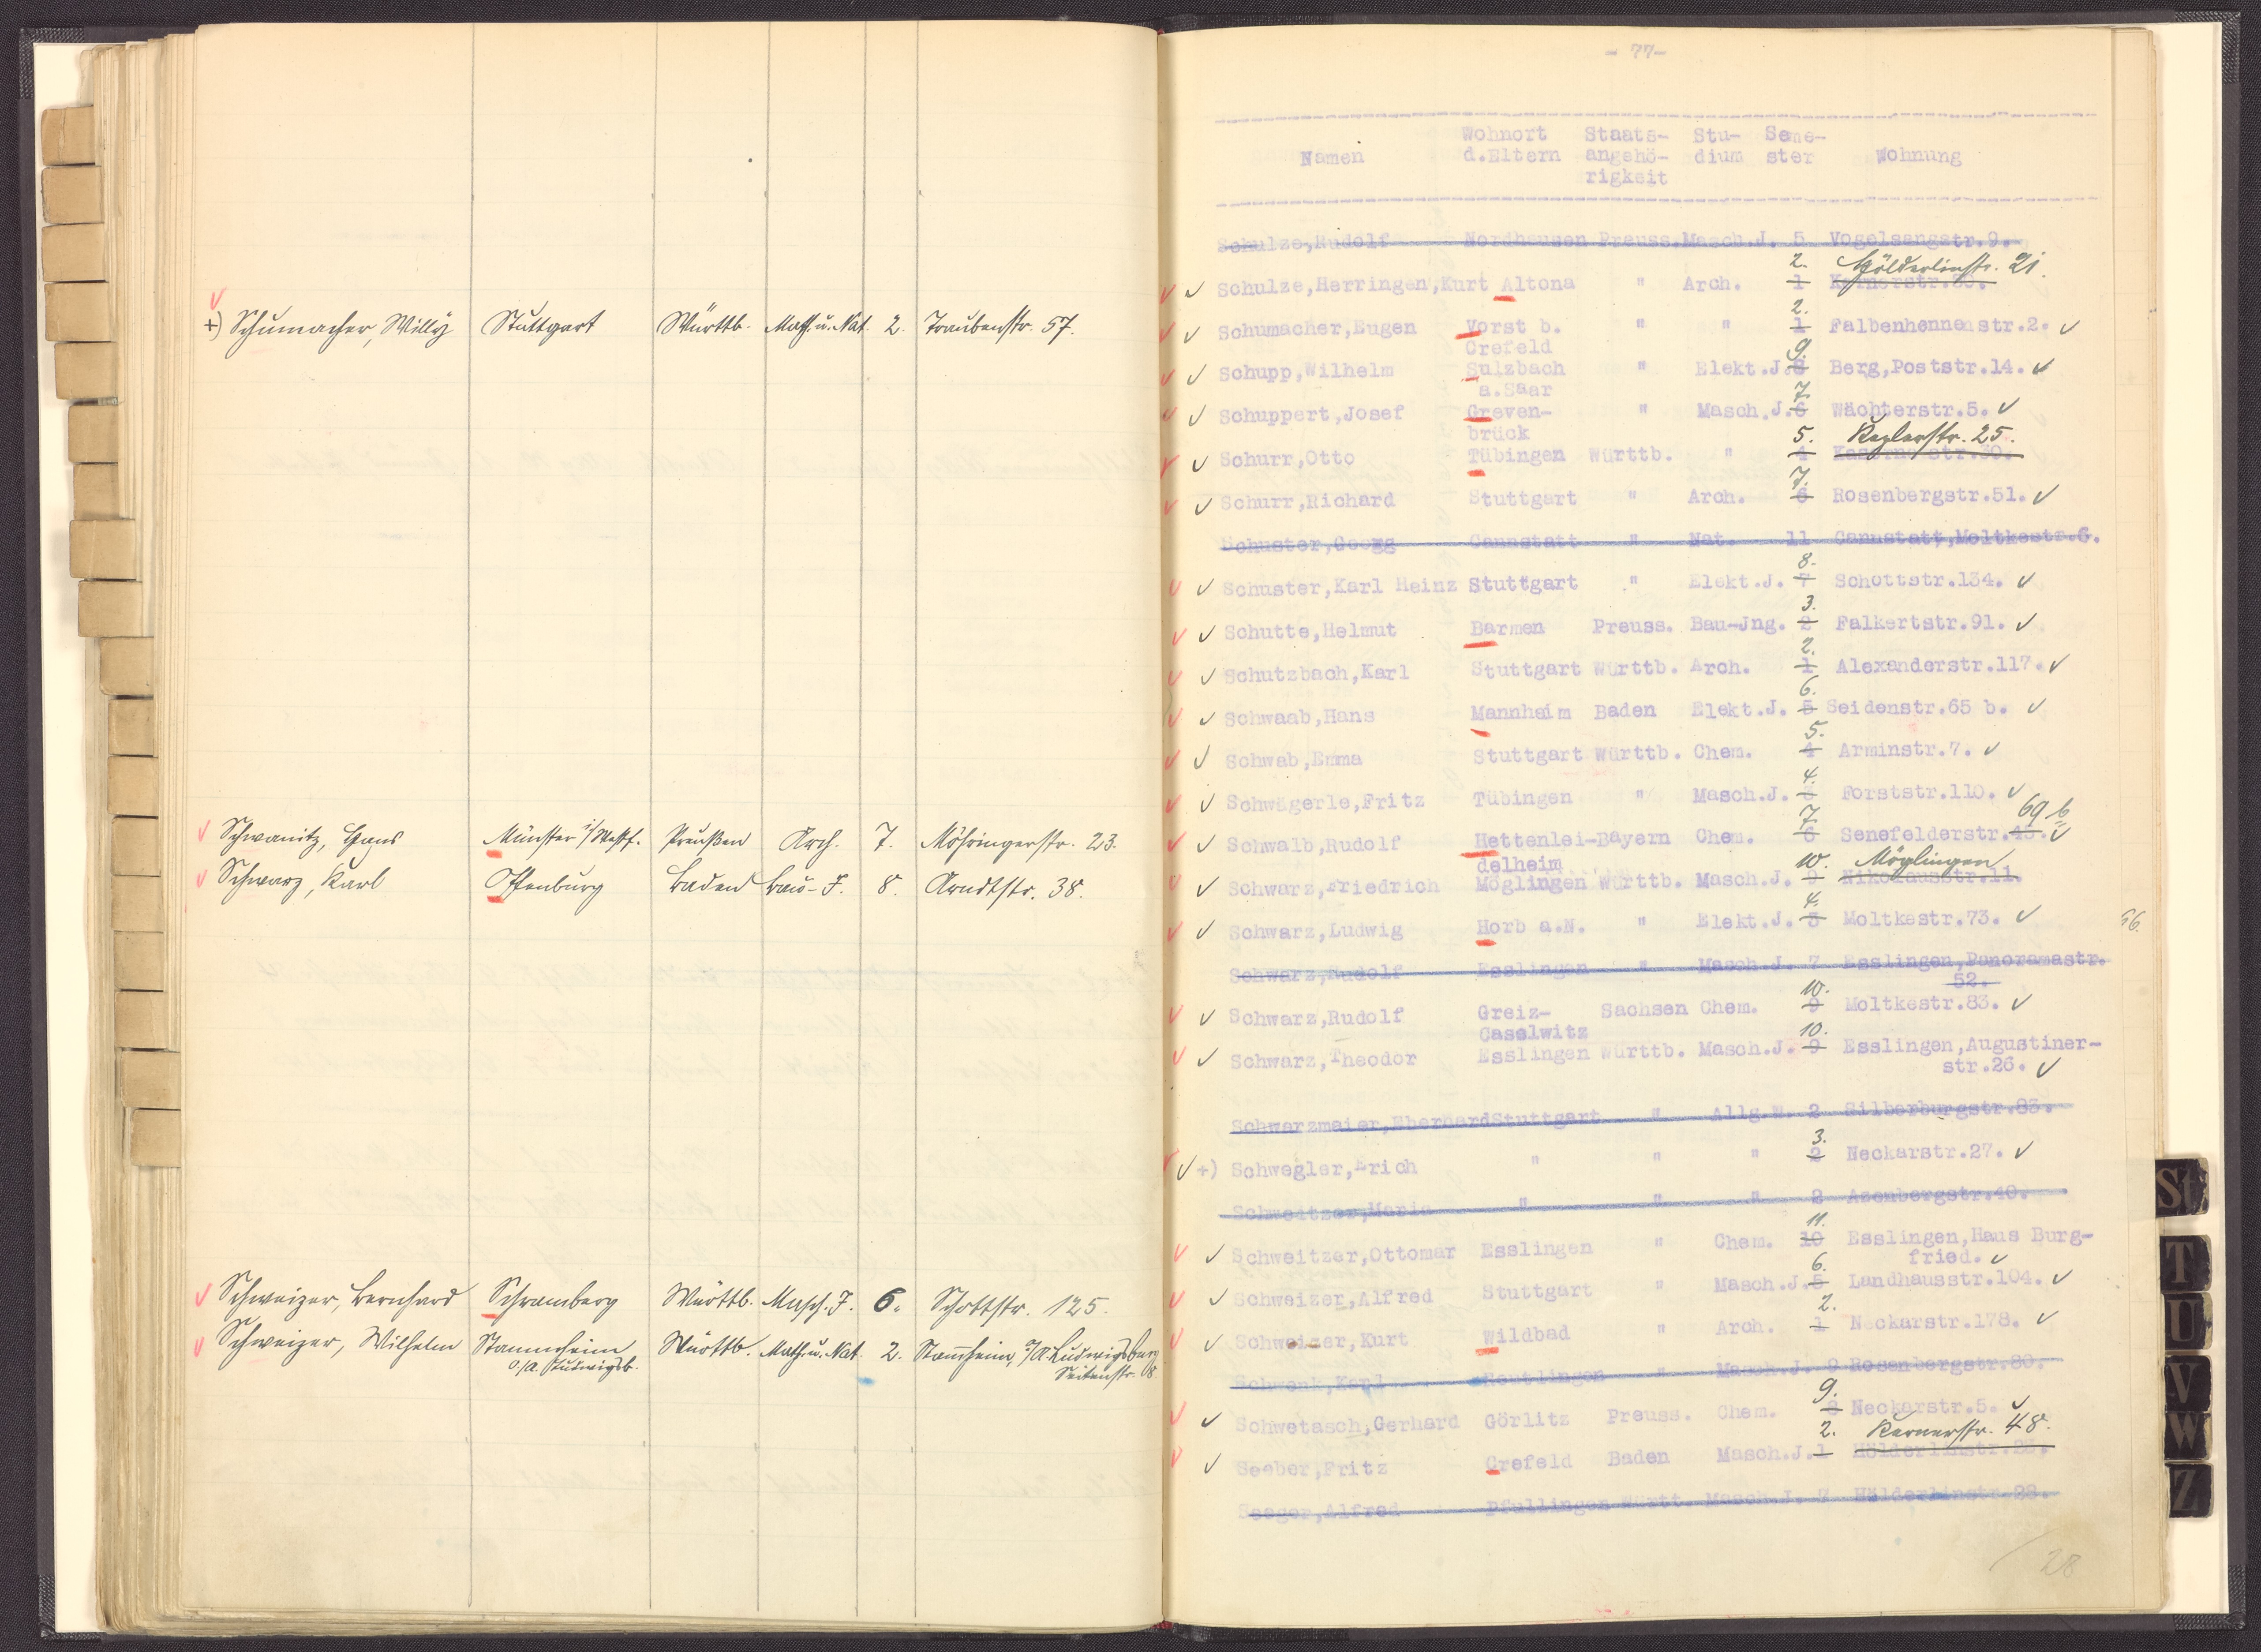 +) Schumacher, Willy Stuttgart Württb. Math. u. Nat. 2. Traubenstr. 57.
Schwanitz, Hans Münster i/Westf. Preußen Arch. 7. Möhringerstr. 23.
Schwarz, Karl Offenburg Baden Bau-J. 8. Arndtstr. 38.
Schweizer, Bernhard Schramberg Württb. Masch. J. 6. Schottstr. 125.
Schweizer, Wilhelm Stammheim Württb. Math. u. Nat. 2. Stam̄heim O/A. Ludwigsburg
O/A. Ludwigsb. Seitenstr. 8.
- 77-
Wohnort Staats- Stu- Seme-
Namen d.Eltern angehö- dium ster Wohnung
rigkeit
Schulze,Rudolf Nordhausen Preuss. Masch.J. 5 Vogelsangstr.9.
2. Hölderlinstr. 21.
Schulze,Herringen,Kurt Altona " Arch. 1
2.
Schumacher,Eugen Vorst b. " " 1 Falbenhennenstr.2.
Crefeld
9.
Schupp,Wilhelm Sulzbach " Elekt.J. 8 Berg,Poststr.14.
a.Saar
7.
Schuppert,Josef Greven- " Masch.J. 6 Wächterstr.5.
brück
5. Keplerstr. 25.
Schurr,Otto Tübingen Württb. " 4
7.
Schurr,Richard Stuttgart " Arch. 6 Rosenbergstr.51.
Schuster,Georg Cannstatt " Nat. 11 Cannstatt,Moltkestr.6.
8.
Schuster,Karl Heinz Stuttgart " Elekt.J. 7 Schottstr.134.
3.
Schutte,Helmut Barmen Preuss. Bau-Jng. 2 Falkertstr.91.
2.
Schutzbach,Karl Stuttgart Württb. Arch. 1 Alexanderstr.117.
6.
Schwaab,Hans Mannheim Baden Elekt.J. 5 Seidenstr.65 b.
5.
Schwab,Emma Stuttgart Württb. Chem. 4 Arminstr.7.
4.
Schwägerle,Fritz Tübingen " Masch.J. 3 Forststr.110.
7. 69 b
Schwalb,Rudolf Hettenlei-Bayern Chem. 6 Senefelderstr.
delheim 10. Möglingen
Schwarz,Friedrich Möglingen Württb. Masch.J. 9 Nikolausstr.11.
4.
Schwarz,Ludwig Horb a.N. " Elekt.J. 3 Moltkestr.73.
56.
Schwarz,Rudolf Esslingen " Masch.J. 7 Esslingen,Panoramastr.
52.
10.
Schwarz,Rudolf Greiz- Sachsen Chem. 9 Moltkestr.83.
Caselwitz
10.
Schwarz,Theodor Esslingen Württb. Masch.J. 9 Esslingen,Augustiner-
str.26.
Schwarzmaier,Eberhard Stuttgart " Allg.W. 2 Silberburgstr.83.
3.
+) Schwegler,Erich " " " 2 Neckarstr.27.
Schweitzer,Maria " " " 2 Azenbergstr.40.
11.
Schweitzer,Ottomar Esslingen " Chem. 10 Esslingen,Haus Burg-
fried.
6.
Schweizer,Alfred Stuttgart " Masch.J. 5 Landhausstr.104.
2.
Schweizer,Kurt Wildbad " Arch. 1 Neckarstr.178.
Schwenk,Karl Reutlingen " Masch.J. 9 Rosenbergstr.80.
9.
Schwetasch,Gerhard Görlitz Preuss. Chem. 8 Neckarstr.5.
2. Kernerstr. 48.
Seeber,Fritz Crefeld Baden Masch.J. 1
Seeger,Alfred Pfullingen Württ. Masch.J. 7
28
St
T
U
V
W
Z